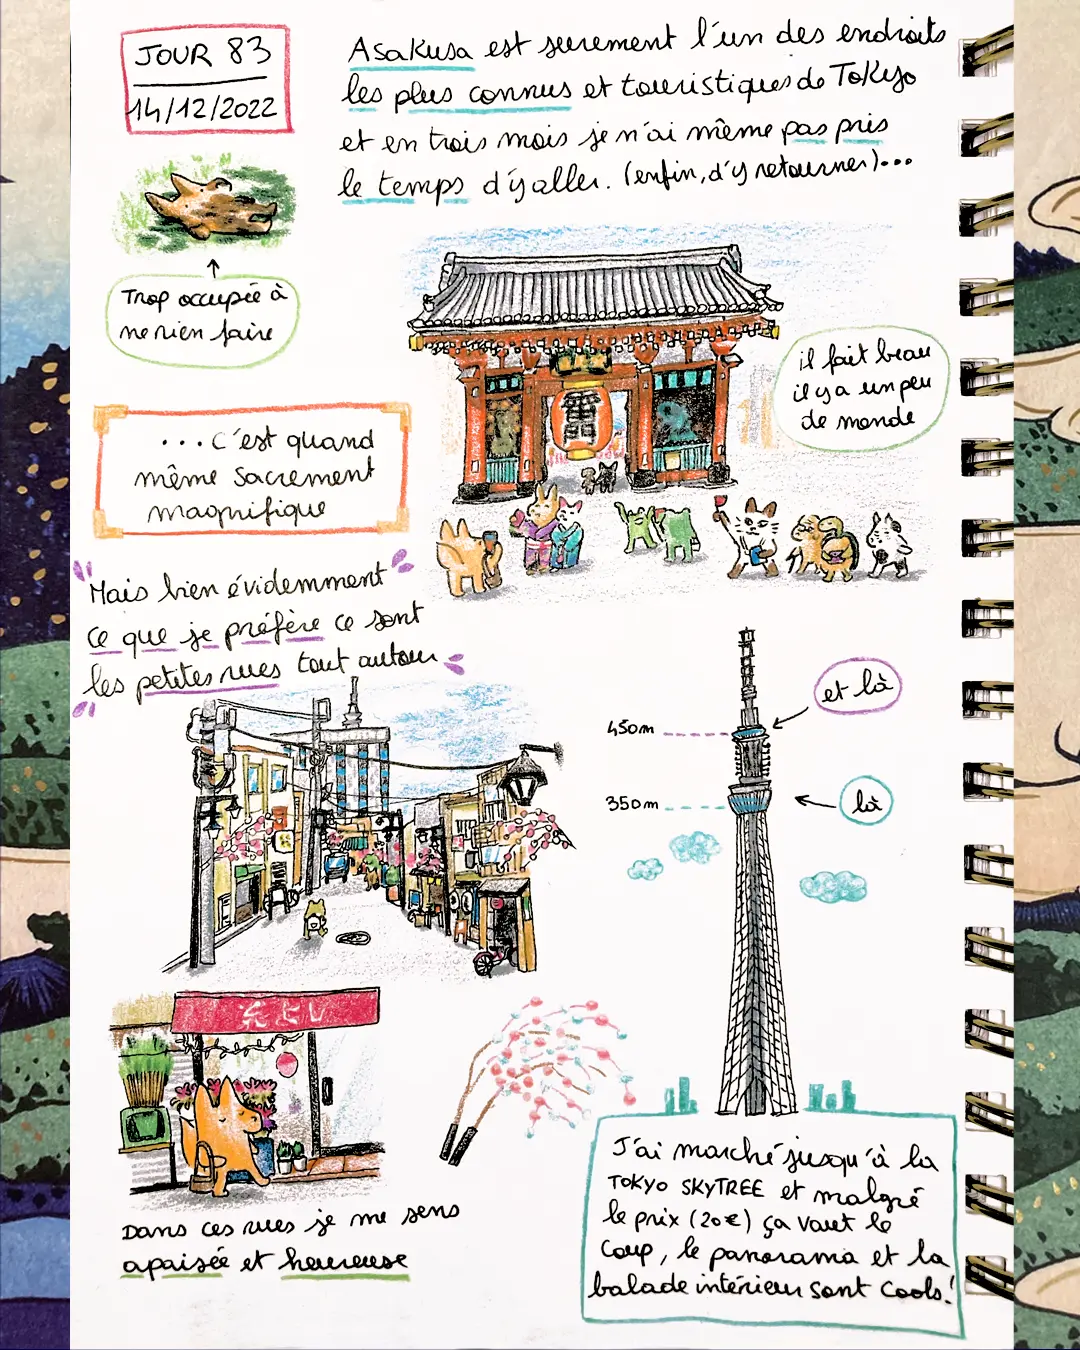 JOUR 83
14/12/2022
Asakusa est seurement l'un des endroits
les plus connus et touristiques de Tokyo
et en trois mois je n'ai même pas pris
le temps d'y aller. (enfin, d'y retourner)...
Trop occupée à
ne rien faire
il fait beau
il y a un peu
de monde
雷門
...c'est quand
même sacrement
magnifique
"Mais bien évidemment
ce que je préfère ce sont
les petites rues tout autour"
et là
450m
350m
là
Dans ces rues je me sens
apaisée et heureuse
J'ai marché jusqu'à la
TOKYO SKYTREE et malgré
le prix (20€) ça vaut le
coup, le panorama et la
balade intérieur sont cools!